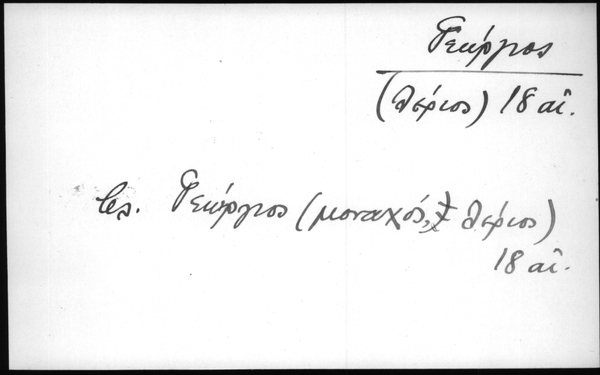 Γεώργιος
(Λέριος) 18 αἰ.
βλ. Γεώργιος (μοναχός, Λέριος)
18 αἰ.